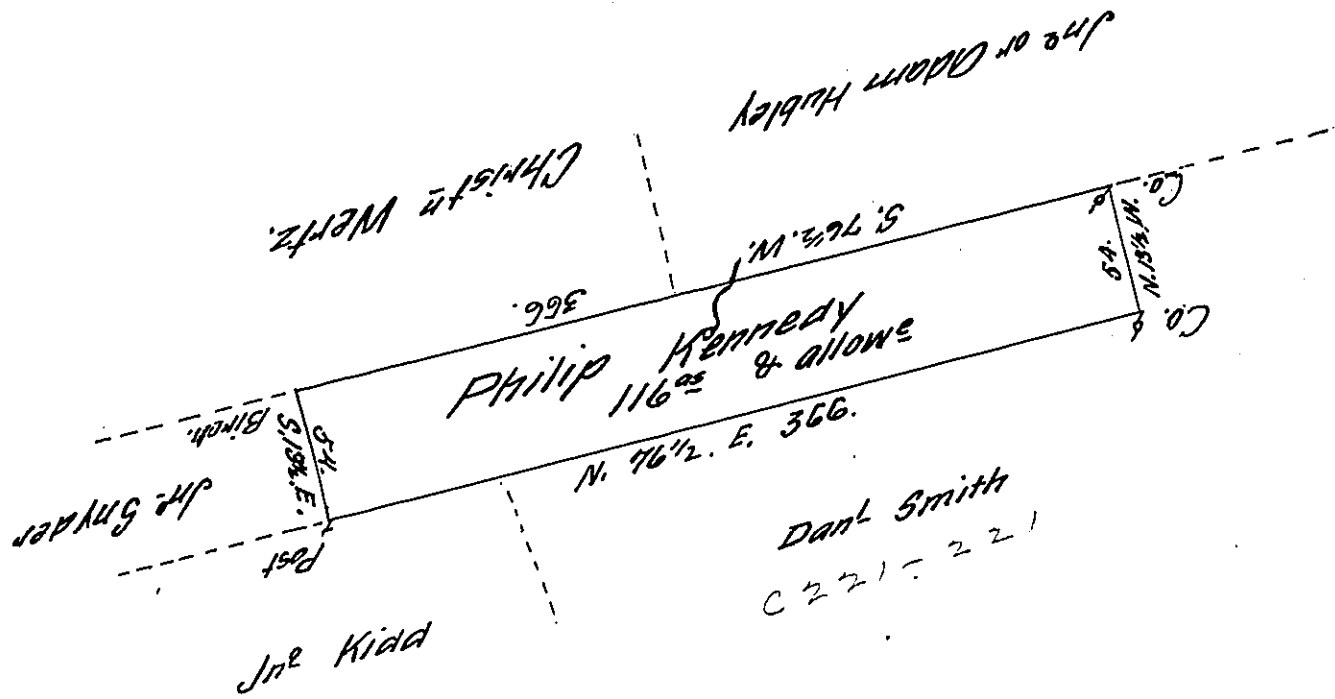 Jnº or Adam Hubley
Christⁿ Wertz.
S. 76½. W.
366.
Co.
N. 13½ W.
54.
Co.
Philip Kennedy
116 ᵃˢ & allowᵉ
Birch.
S. 13½. E.
54.
Jnº Snyder
Post
N. 76½. E. 366.
Danˡ Smith
C 221 - 221
Jnº Kidd